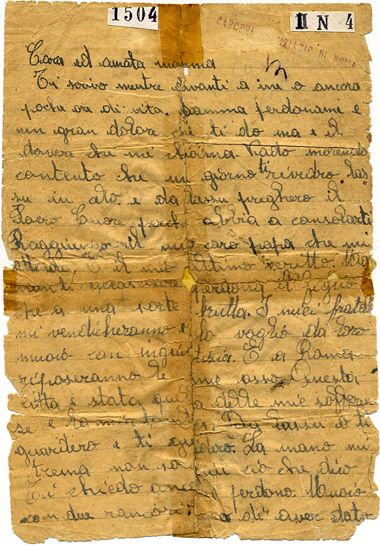 1504
II N 4
CARCERI GIUDIZIARIE DI ROMA
Cara ed amata mamma
Ti scrivo mentre davanti a me o ancora
poche ore di vita. Mamma perdonami e
un gran dolore che ti do ma e il
dovere che mi chiama. Vado morendo
contento che un giorno ti rivedro las
su in celo. e da lassu pregherò il
Sacro Cuore perche abbia a consolarti
Raggiungo il mio caro papa che mi
attende. E il mio ultimo scritto
perdona il figlio
che a una sorte brutta. I miei fratelli
mi vendicheranno e lo voglio da loro
muoio con ingiustizia. E a Roma
riposeranno le mie ossa. Questa
citta e stata quella delle mie soffere
se e la mia Da lassu o ti
guarderò e ti La mano mi
trema non so piu ciò che dico
Ti chiedo ancora perdono. Muoio
con due di aver stato